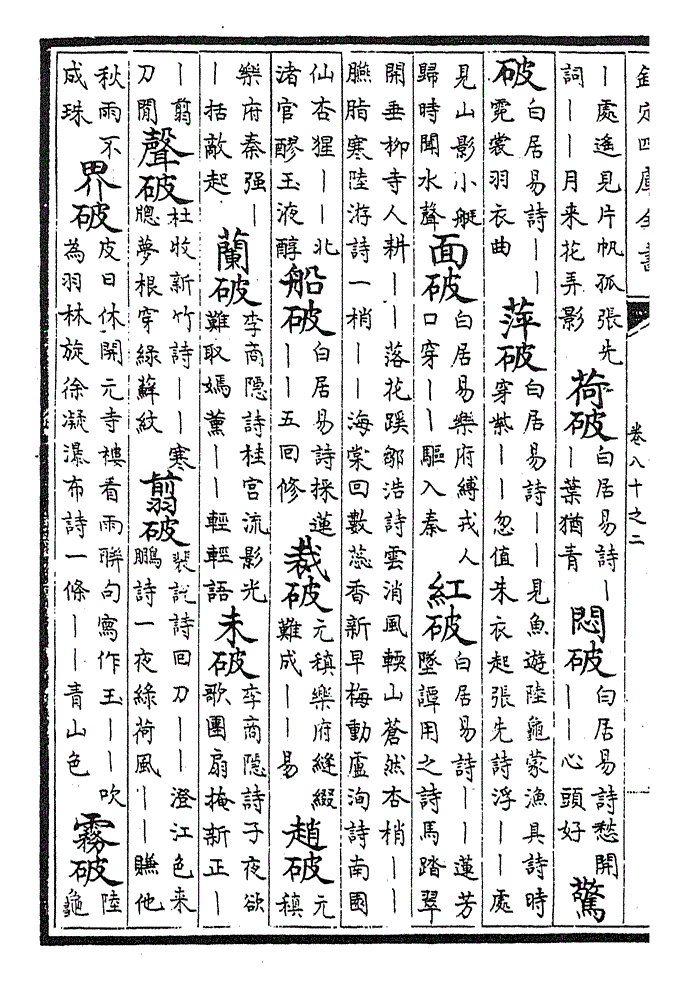 欽定四庫全書 卷八十之二
｜處遙見片帆孤張先詞｜｜月来花弄影 荷破 白居易詩｜｜葉猶青 悶破 白居易詩愁開｜｜心頭好 驚
破 白居易詩｜｜霓裳羽衣曲 萍破 白居易詩｜｜見魚遊陸龜蒙漁具詩時穿紫｜｜忽值朱衣起張先詩浮｜｜處
見山影小艇歸時聞水聲 面破 白居易樂府縛戎人口穿｜｜驅入秦 紅破 白居易詩｜｜蓮芳墜譚用之詩馬踏翠
開垂柳寺人耕｜｜落花蹊鄒浩詩雲消風輭山蒼然杏梢｜｜臙脂寒陸游詩一梢｜｜海棠回數蕊香新早梅動盧洵詩南國
仙杏猩｜｜北渚官醪玉液醇 船破 白居易詩採蓮｜｜五回修 裁破 元稹樂府縫綴難成｜｜易 趙破 元稹
樂府秦强｜｜括敵起 蘭破 李商隐詩桂宫流影光難取嫣薰｜｜輕輕語 未破 李商隐詩子夜欲歌團扇掩新正｜
｜翦刀閒 聲破 杜牧新竹詩｜｜寒牕夢根穿綠蘚紋 翦破 裴說詩回刀｜｜澄江色来鵬詩一夜綠荷風｜｜賺他
秋雨不成珠 界破 皮日休開元寺樓看雨聨句寫作玉｜｜吹為羽林旋徐凝瀑布詩一條｜｜青山色 霧破 陸龜